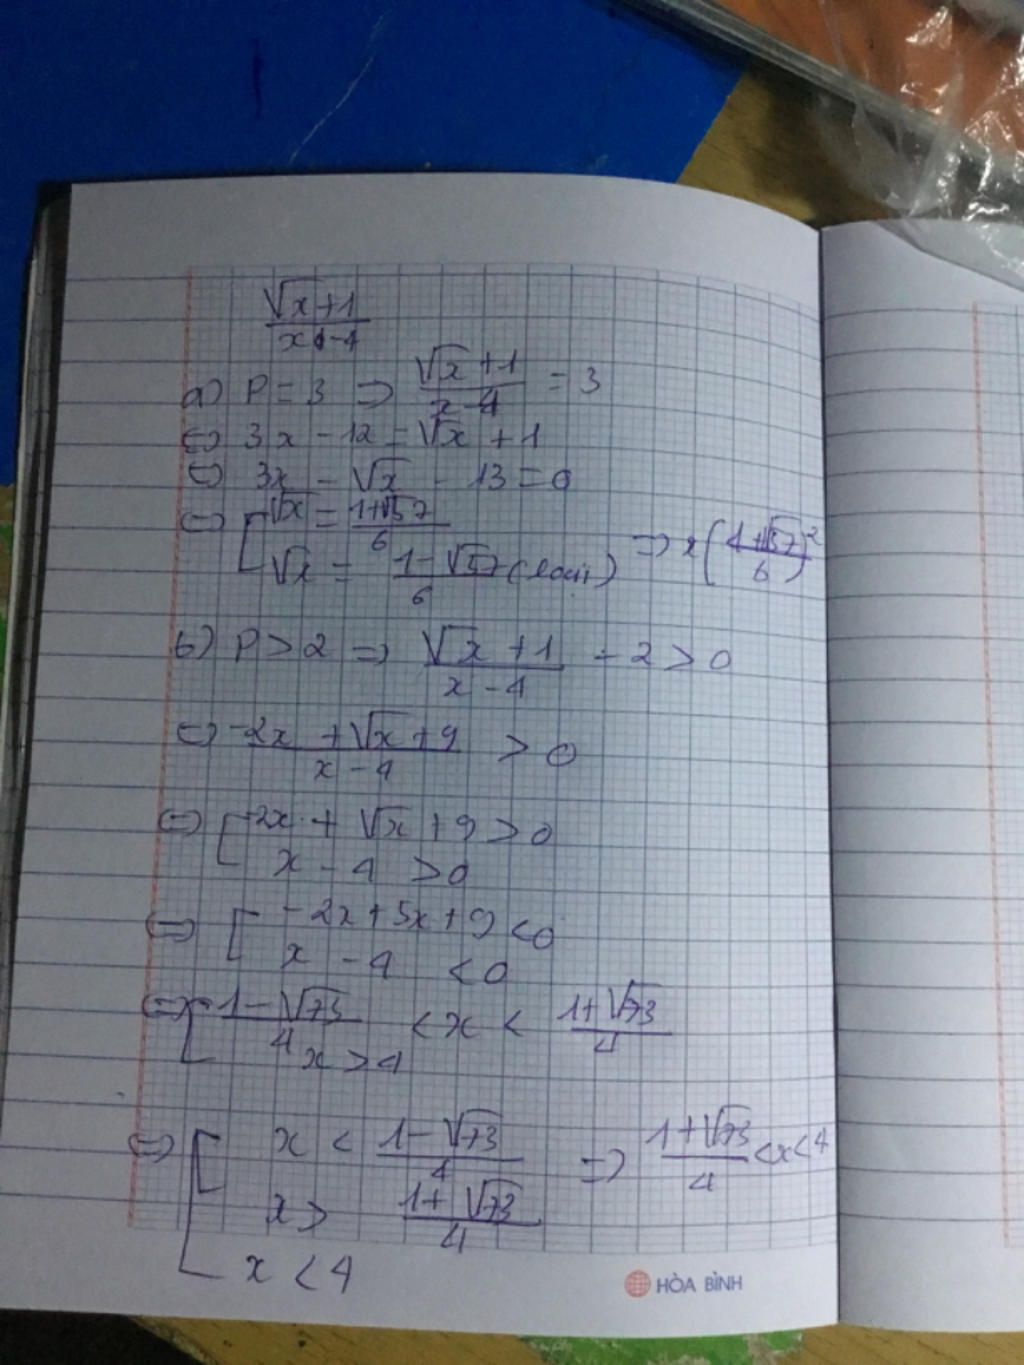 √x + 1 / x - 4
a) P = 3 => √x + 1 / x - 4 = 3
<=> 3x - 12 = √x + 1
<=> 3x - √x - 13 = 0
<=> [ √x = 1+√157 / 6
√x = 1-√157 / 6 (loại) => x (1+√157 / 6)²
b) P > 2 => √x + 1 / x - 4 - 2 > 0
<=> -2x + √x + 9 / x - 4 > 0
<=> [ -2x + √x + 9 > 0
x - 4 > 0
<=> [ -2x + 5x + 9 < 0
x - 4 < 0
<=> [ 1 - √73 / 4 < x < 1+√73 / 4
x > 4
<=> [ x < 1-√73 / 4 => 1+√73 / 4 < x < 4
x > 1+√73 / 4
x < 4
HÒA BÌNH